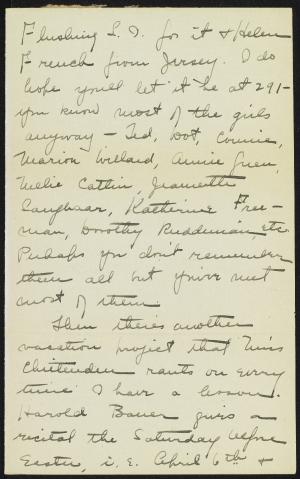 Flushing L. I. for it & Helen
French from Jersey. I do
hope you'll let it be at 291 -
you know most of the girls
anyway - Ted, Dot, Connie,
Marion Willard, Annie Guen,
Melie Catlin, Jeannette
Katherine Free-
man, Dorothy Ruddeman, etc.
Perhaps you don't remember
them all but you've met
most of them.
Then there's another
vacation project that Miss
Chittenden rants on every
time I have a lesson.
Harold Bauer gives a
recital the Saturday before
Easter, i.e. April 6th &